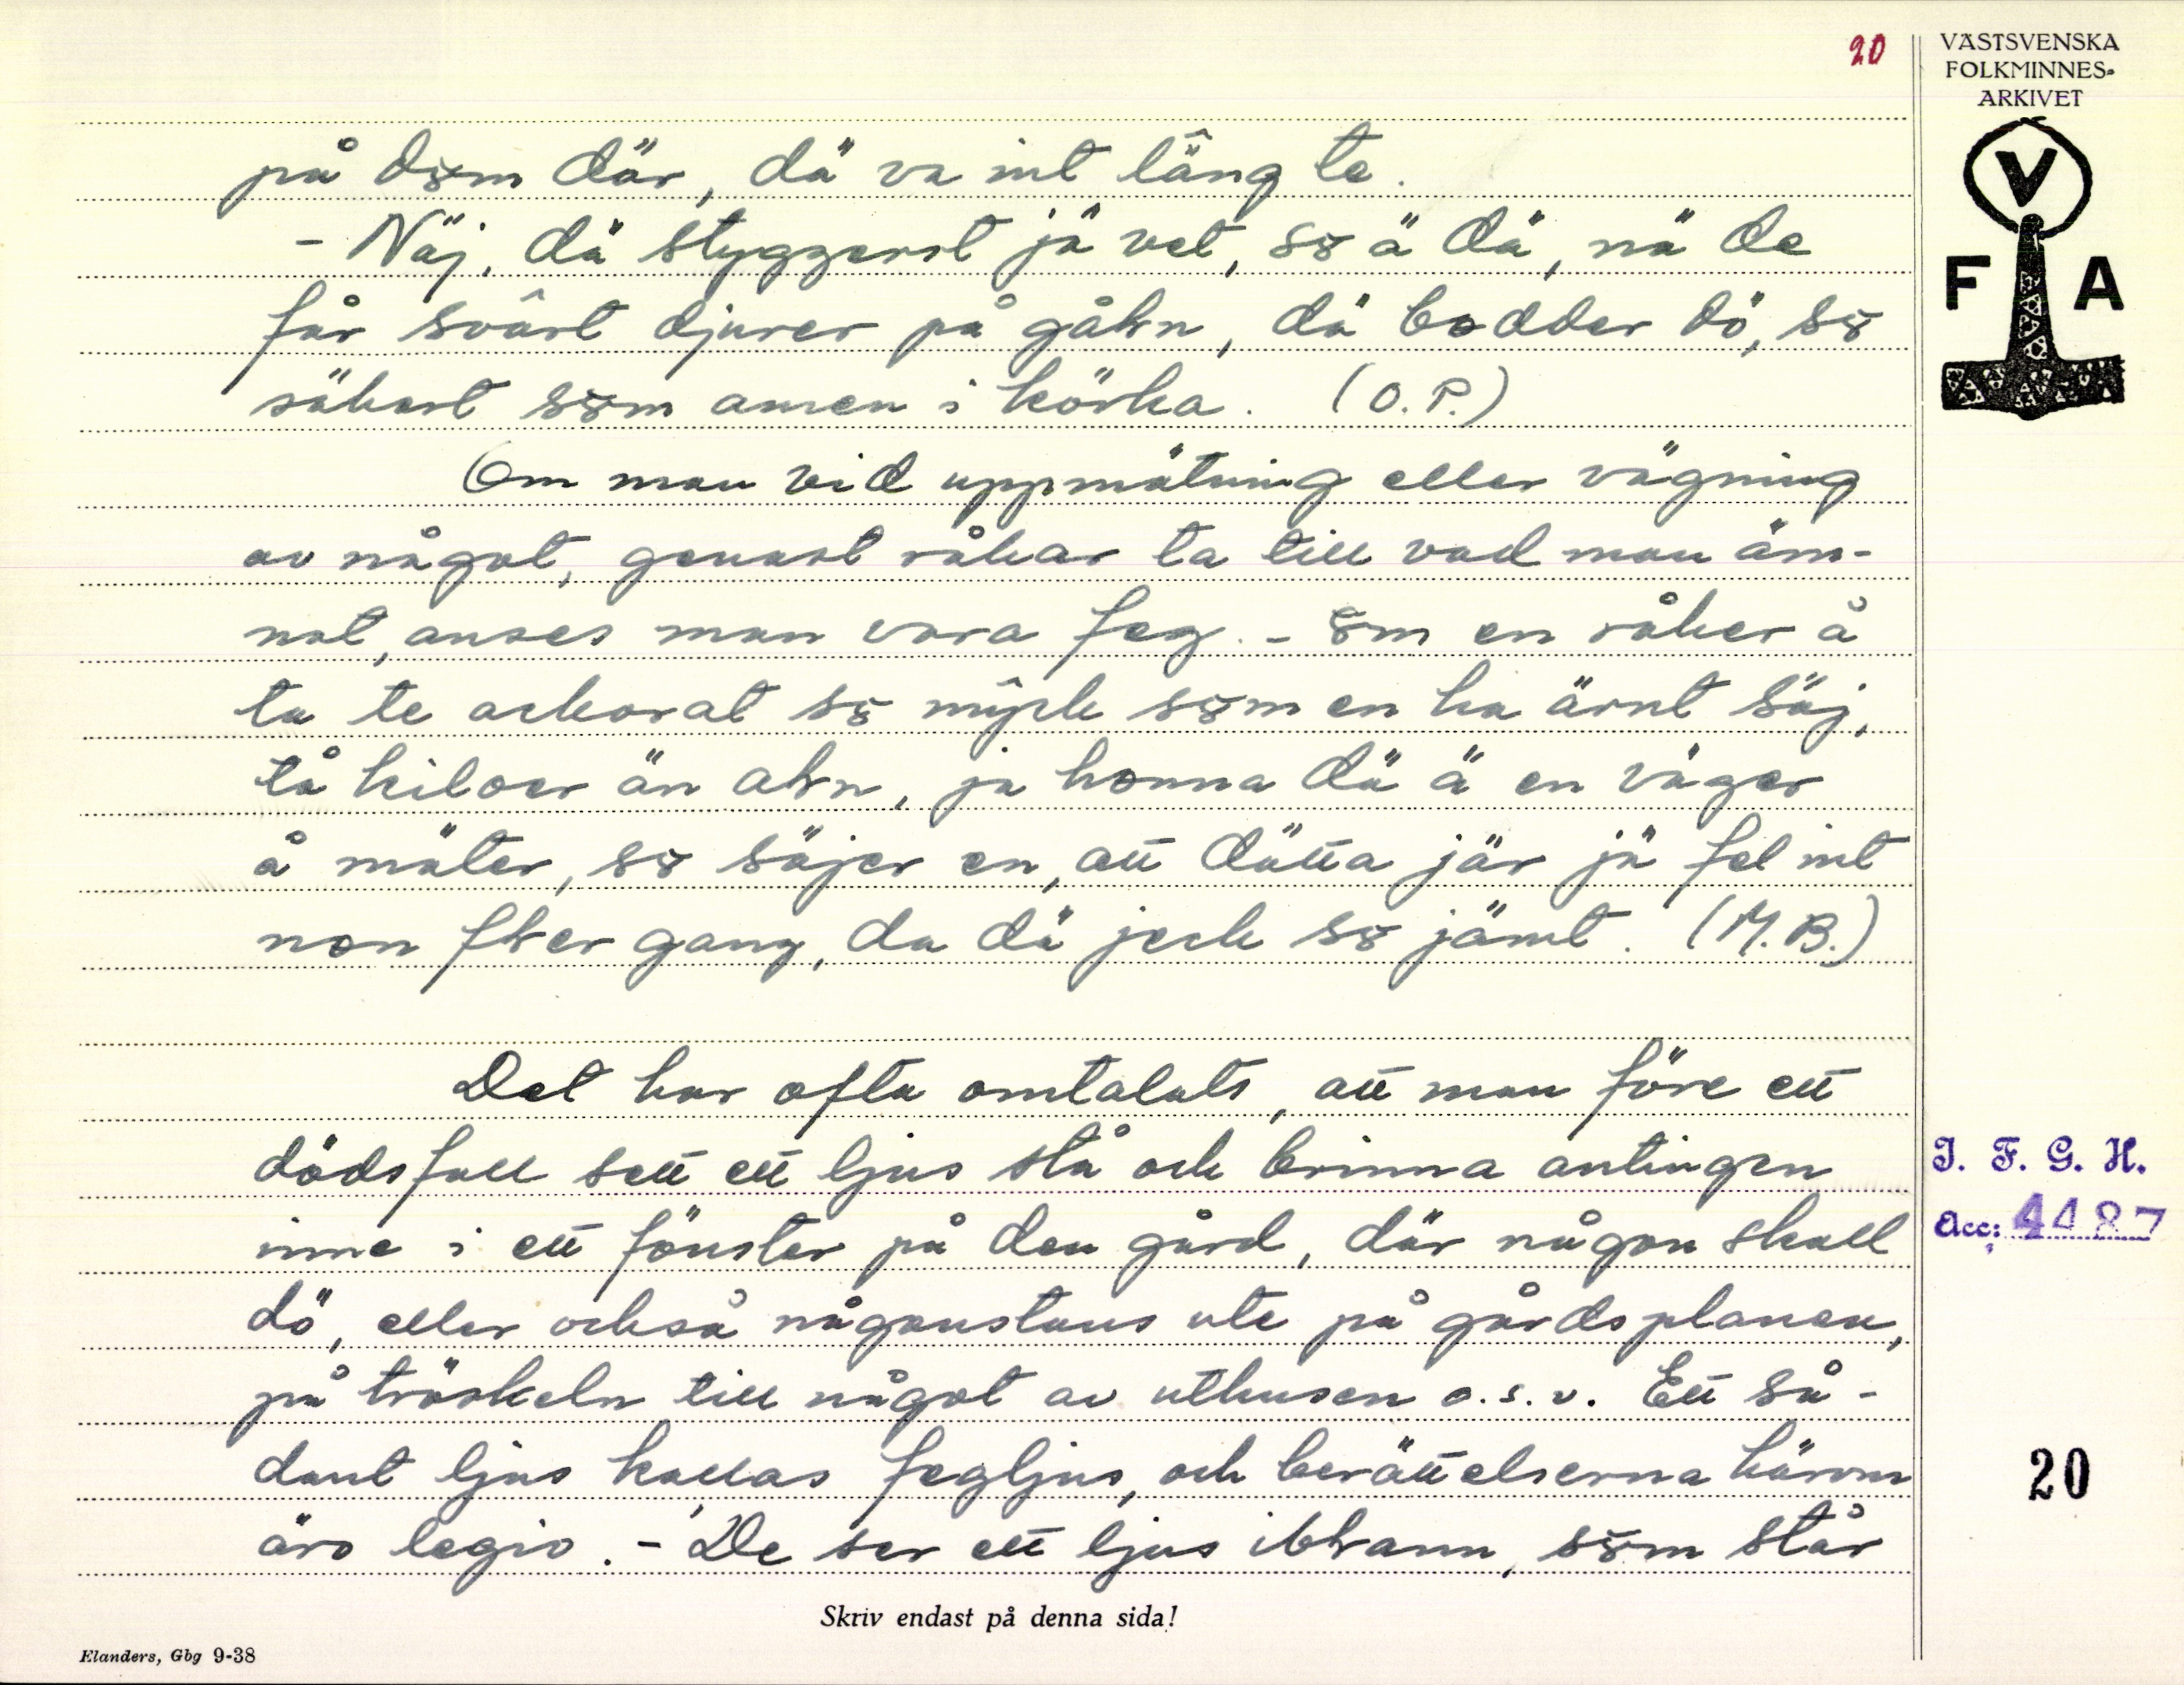 20
VÄSTSVENSKA
FOLKMINNES-
ARKIVET
V
F A
på dȣm där, dä va int lâng te.
- Näj, dä styggerst jä vet, sȣ ä dä, nä de
får svârt djurer på gåhn, dä bodder dö, sȣ
säkert sȣm amen i körka. (O.P.)
Om man vid uppmätning eller vägning
av något, genast råkar ta till vad man äm-
nat, anses man vara feg. - ȣm en råker å
ta te ackorat sȣ mŷck sȣm en ha ärnt säj,
tå kiloer än ahn, ja honna dä ä en väger
å mäter, sȣ säjer en, att dätta jär jä fel int
non fler gang, da dä jeck sȣ jämt. (M.B.)
Det har ofta omtalats, att man före ett
dödsfall sett ett ljus stå och brinna antingen
inne i ett fönster på den gård, där någon skall
dö, eller också någonstans ute på gårdsplanen,
på tröskeln till något av uthusen o.s.v. Ett så-
dant ljus kallas fegljus, och berättelserna härom
äro legio. - De ser ett ljus iblann, sȣm står
I. F. G. H.
Acc: 4487
20
Skriv endast på denna sida!
Elanders, Gbg 9-38